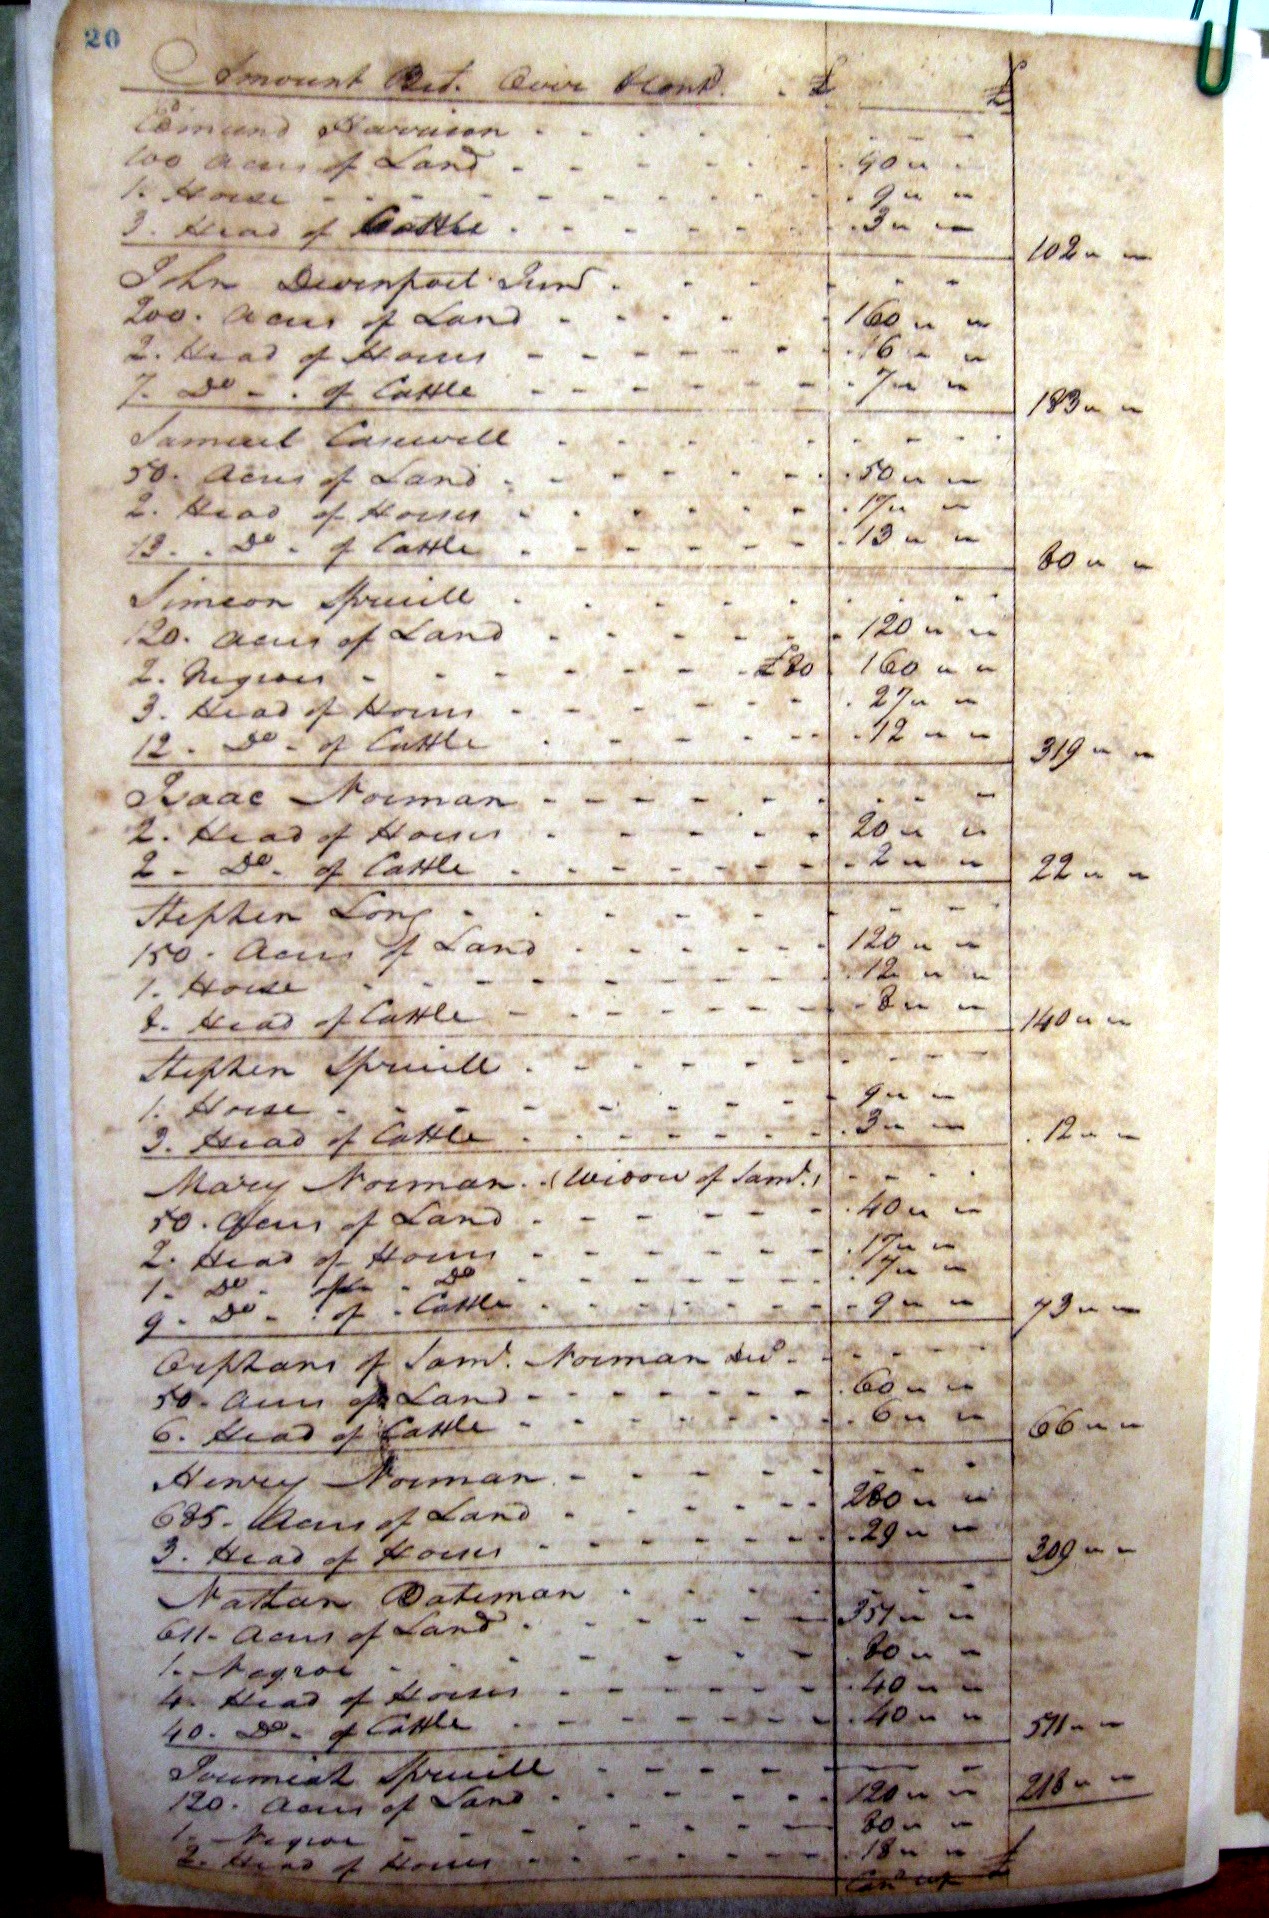 20
Amount Bot. Over Cont^d. . £ £
Edmund Harrison . . . .
100 Acres of Land . . . 90 " "
1. Horse . . . 9 " "
3. Head of Cattle . . . 3 " " 102 " "
John Devenport Jun^r . . .
200. Acres of Land . . . 160 " "
2. Head of Horses . . . 16 " "
7. D^o - . of Cattle . . . 7 " " 183 " "
Samuel Casewell . . .
50. Acres of Land . . . 50 " "
2. Head of Horses . . . 17 " "
13. . D^o - of Cattle . . . 13 " " 80 " "
Simeon Spruill . . .
120. Acres of Land . . . 120 " "
2. Negroes . . . £80 160 " "
3. Head of Horses . . . 27 " "
12. D^o - of Cattle . . . 12 " " 319 " "
Isaac Norman . . .
2. Head of Horses . . . 20 " "
2 - D^o. of Cattle . . . 2 " " 22 " "
Stephen Long . . .
150. Acres of Land . . . 120 " "
1. Horse . . . 12 " "
8. Head of Cattle . . . 8 " " 140 " "
Stephen Spruill . . .
1. Horse . . . 9 " "
3. Head of Cattle . . . 3 " " 12 " "
Mary Norman. (Widow of Sam^l.) . . .
50. Acres of Land . . . 40 " "
2. Head of Horses . . . 17 " "
1. D^o. of D^o . . . 7 " "
9. D^o - . of . Cattle . . . 9 " " 73 " "
Orphans of Sam^l. Norman Dec^d . . .
50. Acres of Land . . . 60 " "
6. Head of Cattle . . . 6 " " 66 " "
Henry Norman . . .
685. Acres of Land . . . 280 " "
3. Head of Horses . . . 29 " " 309 " "
Nathan Bateman . . .
611. Acres of Land . . . 351 " "
1. Negroe . . . 80 " "
4. Head of Horses . . . 40 " "
40. D^o. of Cattle . . . 40 " " 511 " "
Jeremiah Spruill . . .
120. Acres of Land . . . 120 " " 218 " "
1. Negroe . . . 80 " "
2. Head of Horses . . . 18 " " £
Car^d up